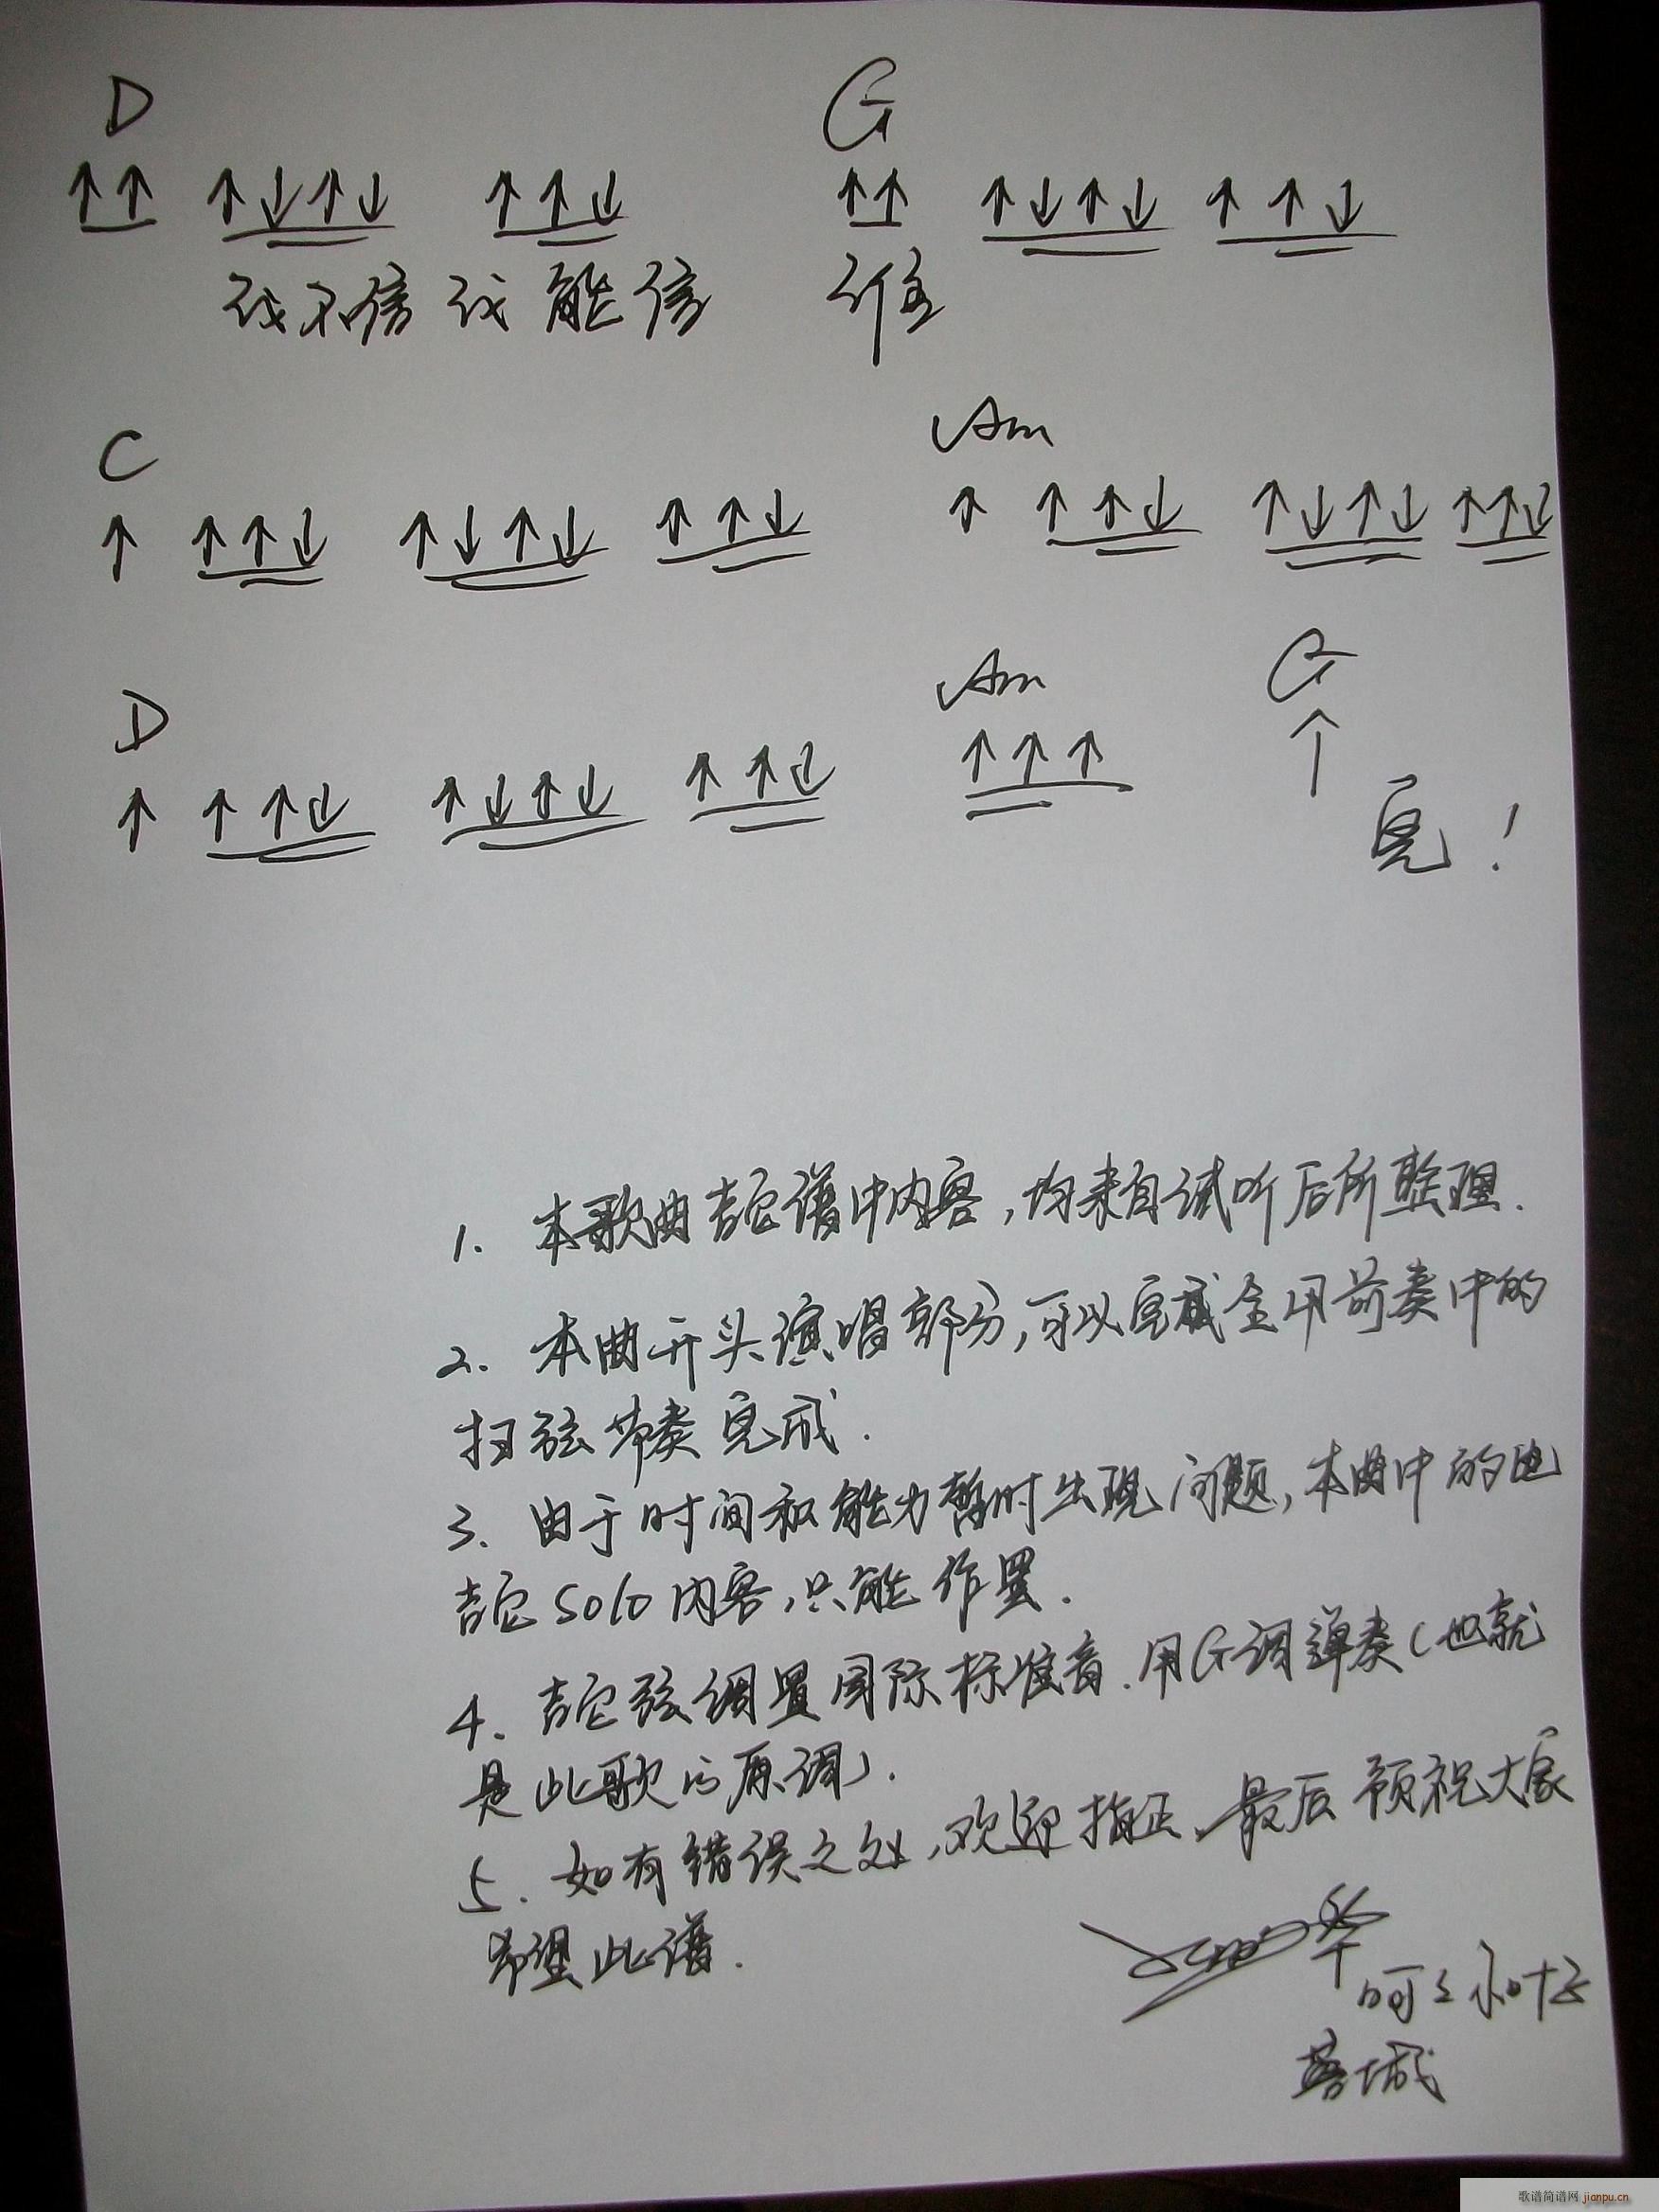 D G
↑↑ ↑↓↑↓ ↑↑↓ ↑↑ ↑↓↑↓ ↑↑↓
我不信我能信 谁
C Am
↑ ↑↑↓ ↑↓↑↓ ↑↑↓ ↑ ↑↑↓ ↑↓↑↓ ↑↑↓
D Am G
↑ ↑↑↓ ↑↓↑↓ ↑↑↓ ↑↑↑ ↑
完!
1. 本歌曲吉它谱中内容,均来自试听后所整理.
2. 本曲开头演唱部分,可以完成全用前奏中的
扫弦节奏完成.
3. 由于时间和能力暂时出现问题,本曲中的电
吉它Solo内容,只能作罢.
4. 吉它弦调置国际标准音.用G调弹奏(也就
是此歌的原调).
5. 如有错误之处,欢迎指正、最后预祝大家
希望此谱.
华
蓉城
歌谱简谱网 jianpu.cn